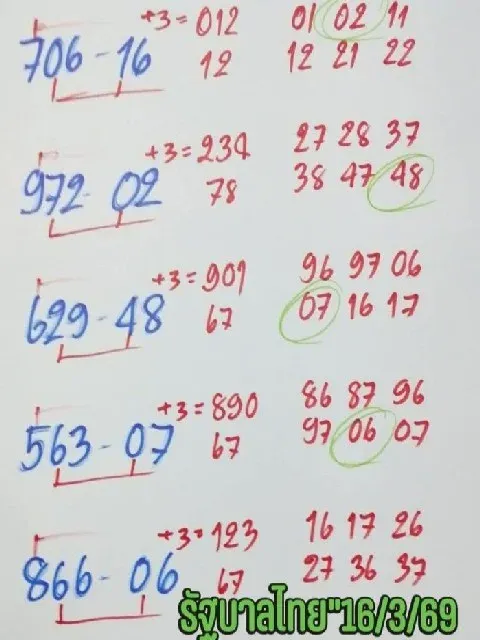 +3= 012 01 02 11
706-16 12 12 21 22
+3=234 27 28 37
972-02 78 38 47 48
+3=901 96 97 06
629-48 67 07 16 17
+3=890 86 87 96
563-07 67 97 06 07
+3=123 16 17 26
866-06 67 27 36 37
รัฐบาลไทย"16/3/69